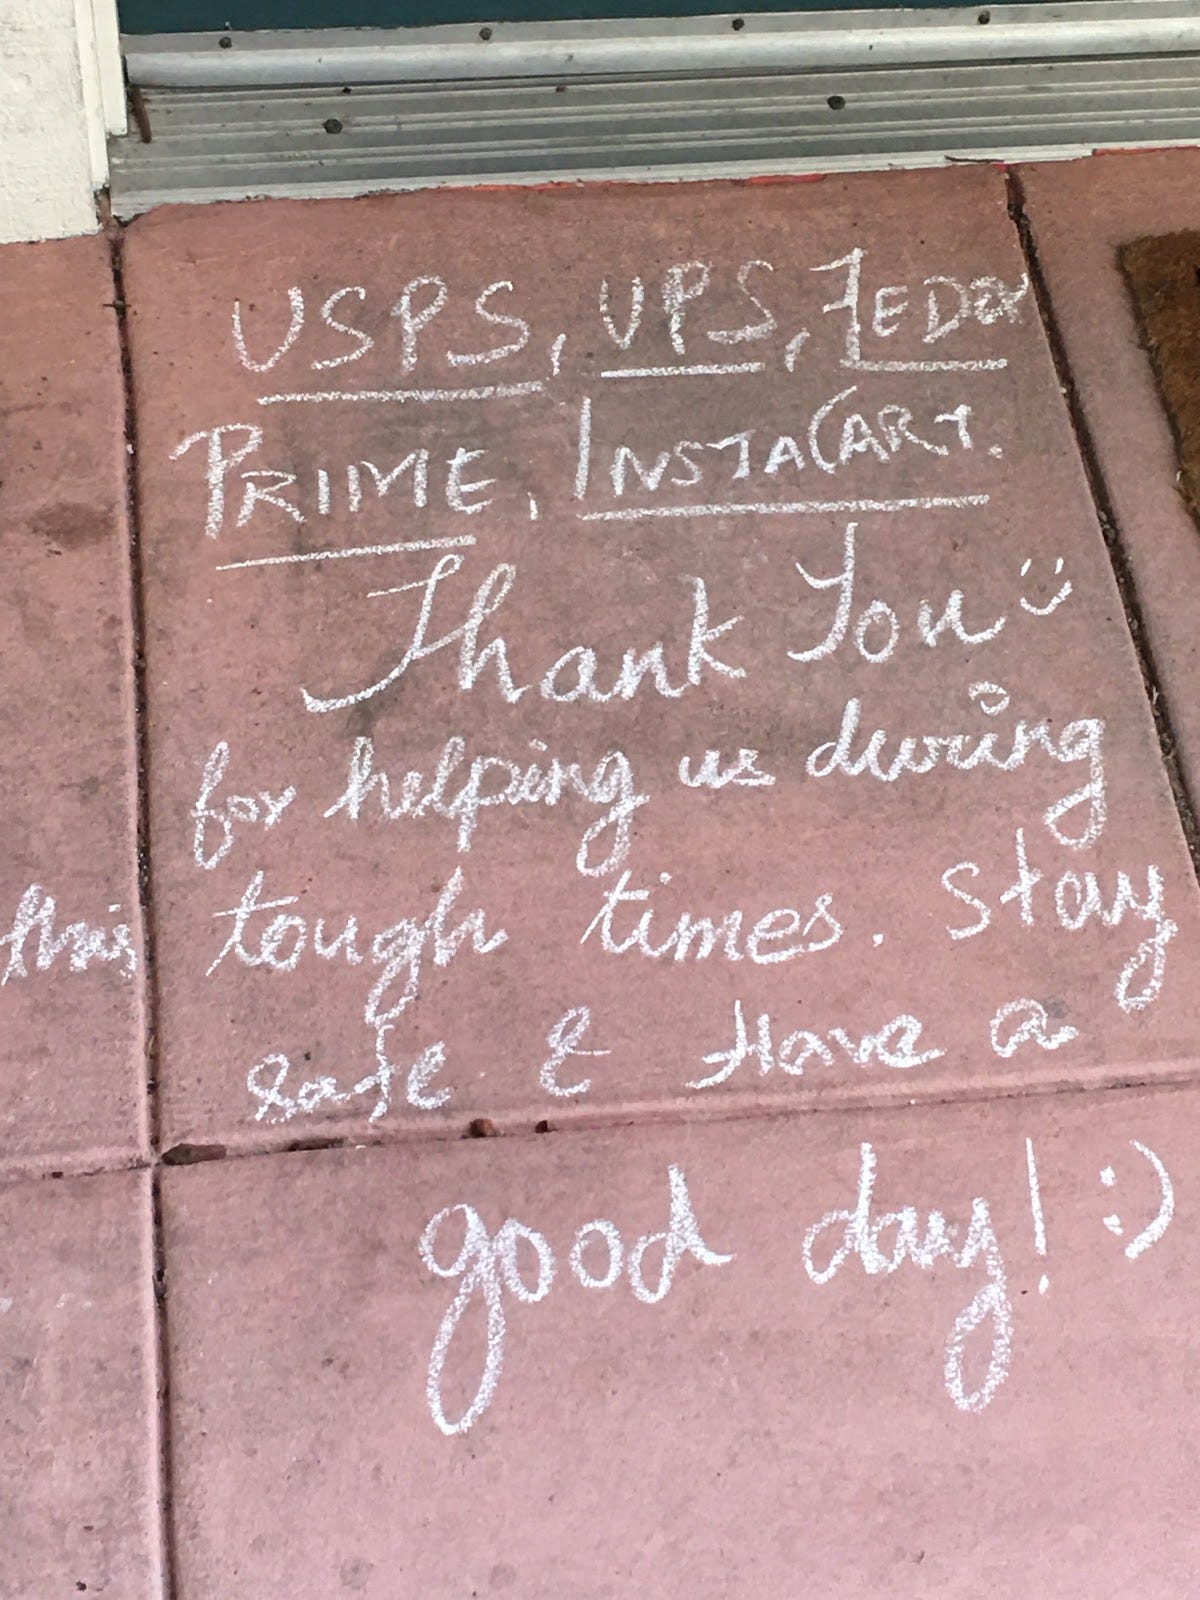 USPS, UPS, FEDEX
PRIME, INSTACART.
Thank You :)
for helping us during
this tough times. Stay
safe & Have a
good day! :)